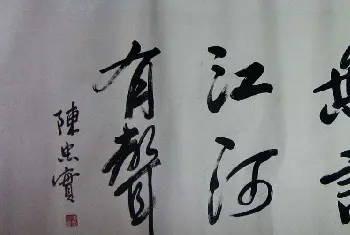 無言
江河
有聲
陳忠實